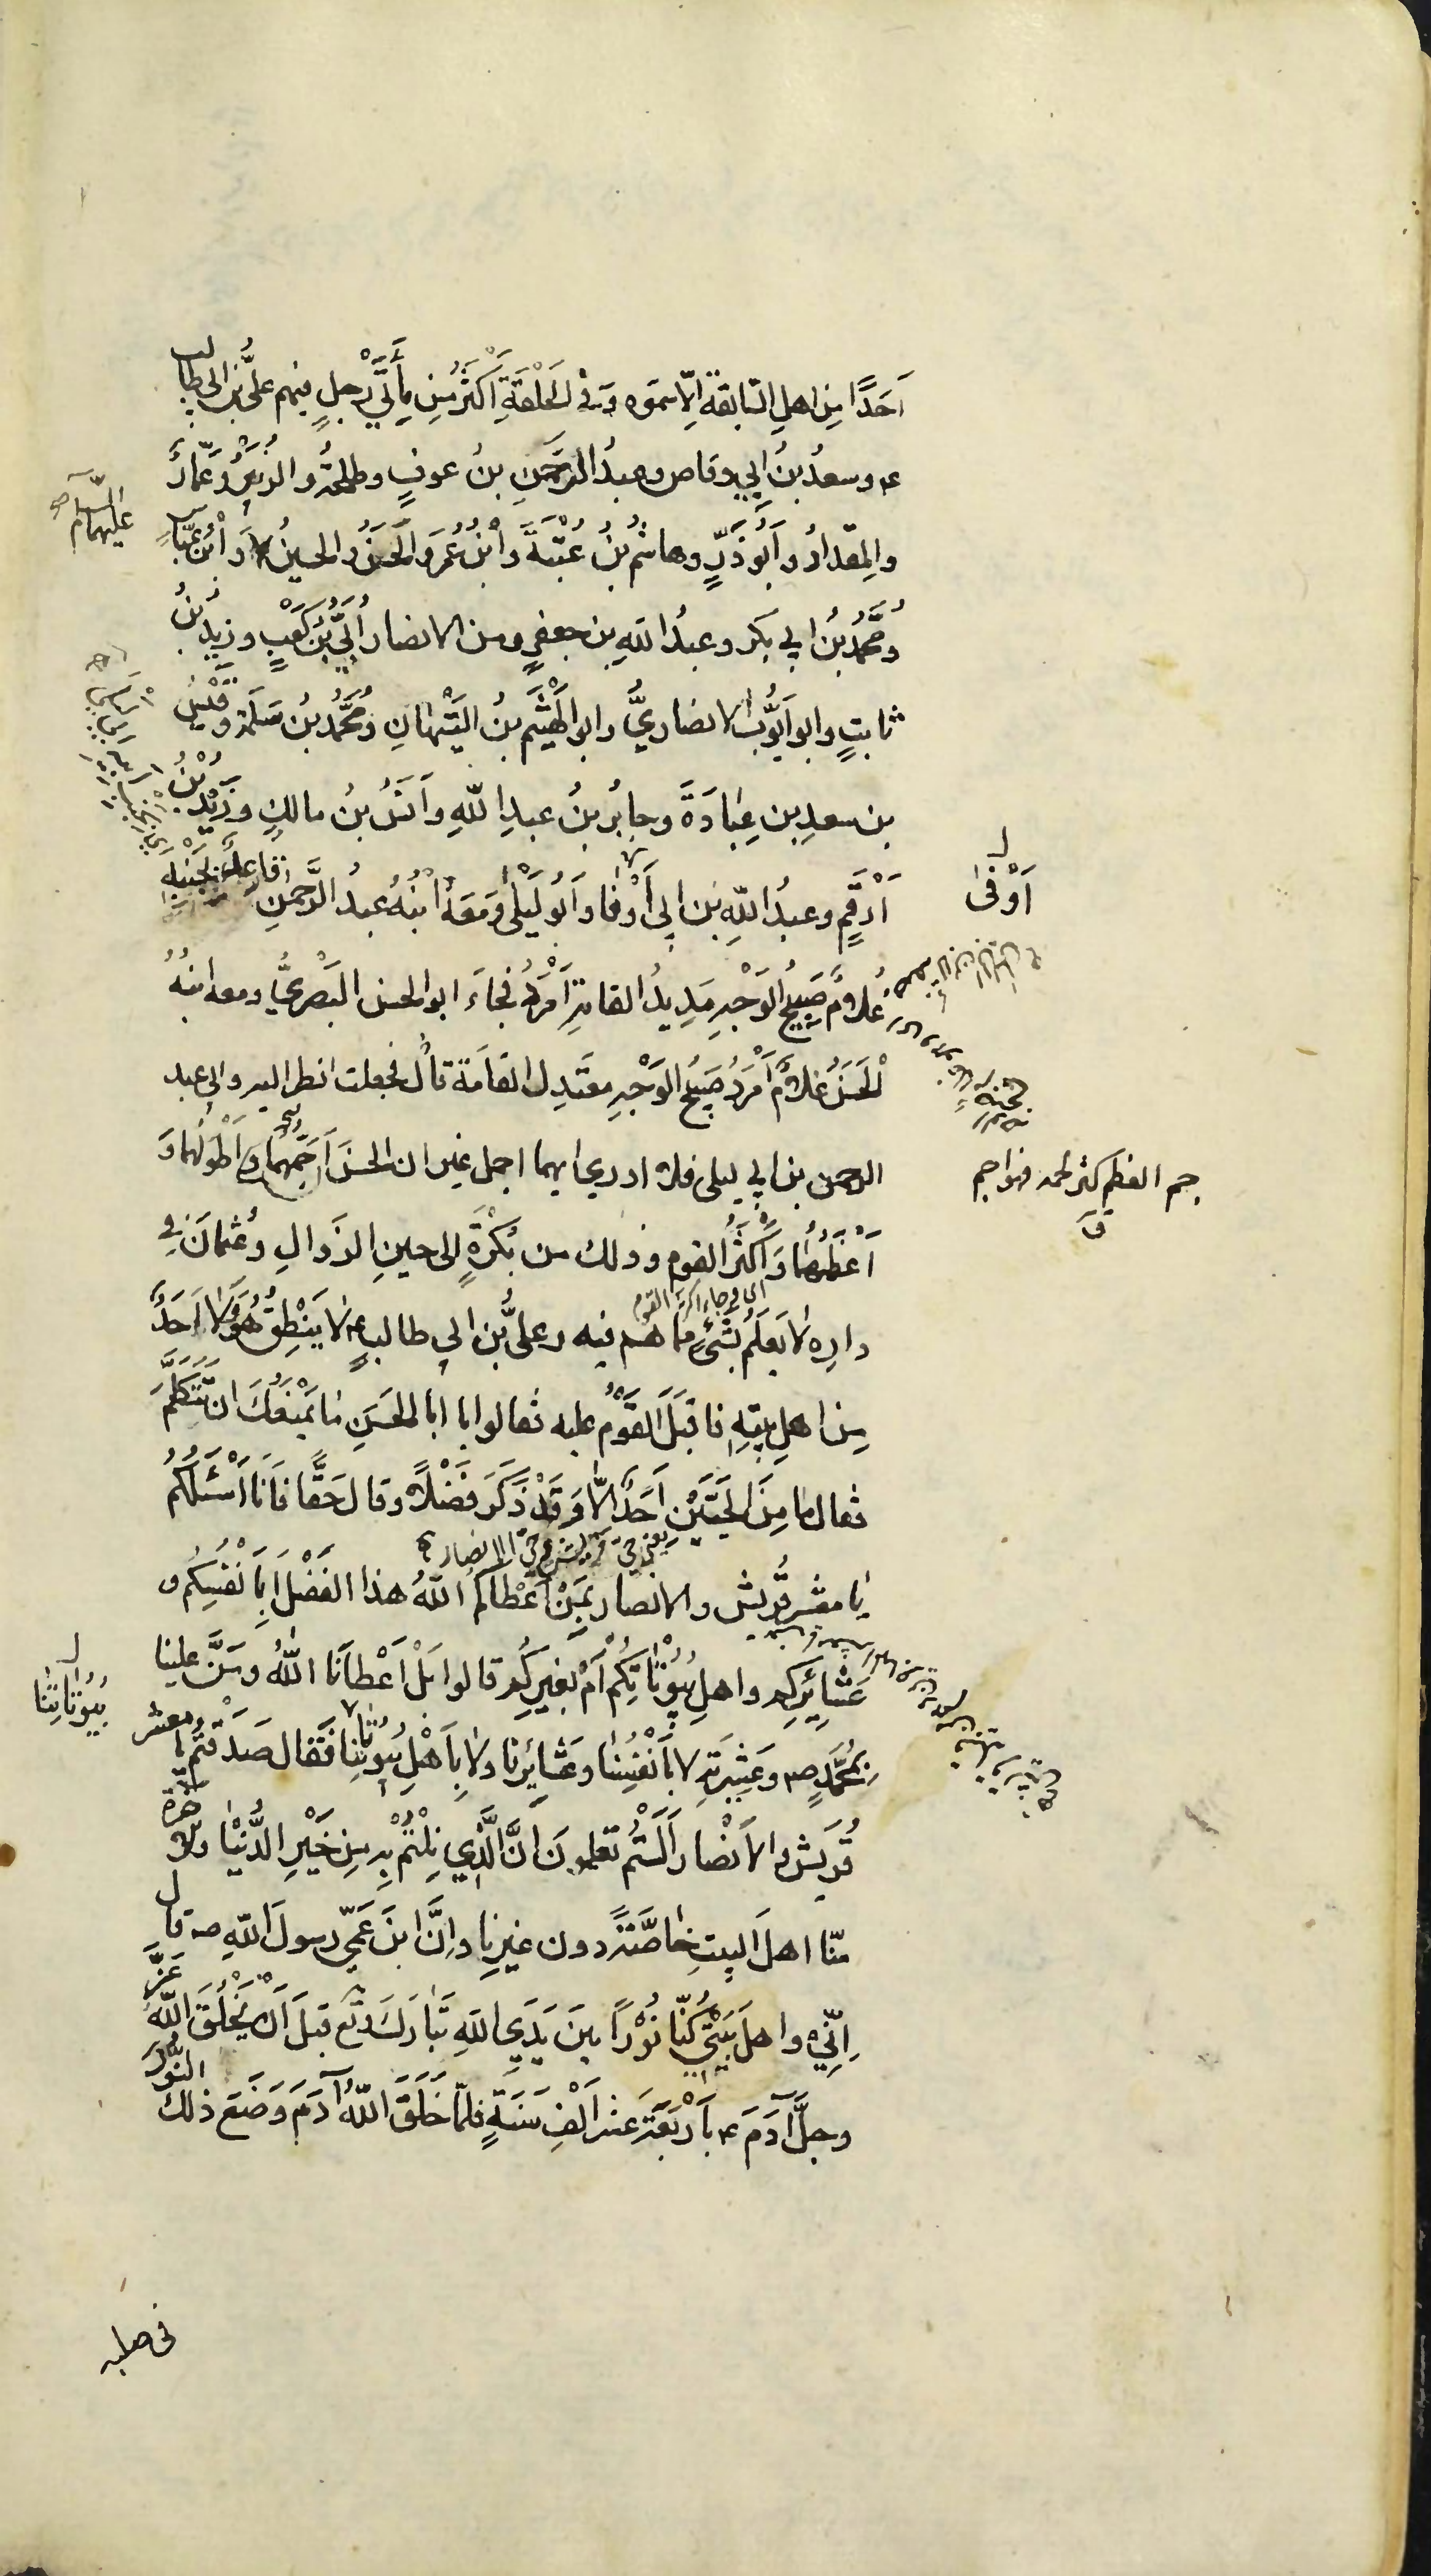 اَحَدًا مِن اهلِ السّابقة اِلّا سمّوه وَفى الحَلْقَةِ اَكْثَرُ مِن مِأَتَيْ رَجلٍ فيهم علىُّ بنُ ابى طالب
ع وسعدُ بنُ اَبِي وقاص وعبدُ الرَّحمٰنِ بنُ عوفٍ وطلحةُ والزبَيْرُ وَعَمّارٌ
والمِقدادُ واَبُو ذَرٍّ وهاشمُ بنُ عُتْبَةَ وَابْنُ عُمَرَ والحَسَنُ والحسينُ وَابْنُ عبّاسٍ
عليهما السّلام
ومُحَمَّدُ بنُ ابي بكر وعبدُ اللهِ بن جعفرٍ ومن الانصار اُبَيُّ بْنُ كَعْبٍ وزيدُ بنُ
ثابتٍ وابو اَيُّوبَ الانصاريُّ وابو الهَيْثَمِ بنُ التَيْهانِ ومُحَمَّدُ بنُ سَلَمَة وقَيْسُ
بن سعدِ بن عِبادَةَ وجابرُ بنُ عبدِ اللّهِ واَنَسُ بنُ مالكٍ وزَيْدُ بْنُ
اَرْقَمٍ وعبدُ اللّهِ بن ابى اَوْفا واَبُو لَيْلىٰ ومَعَهُ ابْنُهُ عبدُ الرَّحمٰنِ قاعدٌ بجَنْبِهِ
اَوْفىٰ
غلامٌ صَبِيحُ الوَجْهِ مَدِيدُ القامةِ اَمْرَدُ فجاءَ ابو الحسن البَصْرِيُّ ومعه ابنُهُ
الْحَسَنُ غلامٌ اَمْرَدُ صَبِيحُ الوَجْهِ معتَدِل القامَة قال فجعلت انظر اليه والى عبد
الرحمن بن ابي ليلى فلا ادري ايهما اجمل غير ان الحسنَ اَجَمُّهُما وَاَطْوَلُهُما وَ
جم العظم كثر لحمه فهو اجم
ق
اَعْظَمُهُما وَاَكثَرُ القوم وذلك من بُكْرَةٍ الى حينِ الزَوالِ وعُثمانَ فى
دارِهِ لا يَعلَمُ بشَيْءٍ مّما هُم فيه وعلىُّ بن ابي طالبٍ ع لا يَنْطِقُ هُوَ وَلا اَحَدٌ
مِن اهلِ بيتِهِ فاقبَلَ القَوْمُ عليه فقالوا يا ابا الحَسَنِ ما يَمْنَعُكَ ان تَتَكَلَّمَ
فقال ما مِنَ الحَيَّيْنِ اَحَدٌ اِلّا وَقَدْ ذَكَرَ فَضْلاً وقال حَقًّا فَاَنا اَسْئَلُكُم
يعنى حىّ قريش وحىّ الانصار
يا معشرَ قُريش والانصار بِمَنْ اَعْطاكُم اللّهُ هذا الفَضْلَ اَبِاَنْفُسِكُم و
عَشائِرِكم واهلِ بُيُوتاتِكُم اَمْ بغيرِكُم قالوا بَلْ اَعْطانا اللّهُ ومَنَّ علينا
بِمُحَمَّدٍ ص وعَشِيرَتِهِ لا بأَنْفُسِنا وعَشائِرِنا ولا بِاَهْلِ بُيُوتِنا فَقال صَدَقْتُم يا معشر
بُيُوتاتِنا
قُرَيش والانصار اَلَسْتُم تعلمونَ اَنَّ الَّذِي نِلْتُم بِهِ مِن خَيْرِ الدُّنْيا والآخرة
منّا اهلَ البيتِ خاصَّةً دون غيرِنا وانَّ ابنَ عَمِّي رسولَ اللّهِ ص قال
اِنّي واهلَ بَيْتي كُنّا نُوْراً بينَ يَدَيِ اللّهِ تَبارَكَ وتع قبلَ اَنْ يَخْلُقَ اللّهُ عَزَّ
وجلَّ آدَمَ ع بأَرْبَعَةَ عشرَ اَلْفِ سَنَةٍ فلمّا خَلَقَ اللّهُ آدَمَ وَضَعَ ذلك النُّورَ
فى صلبه